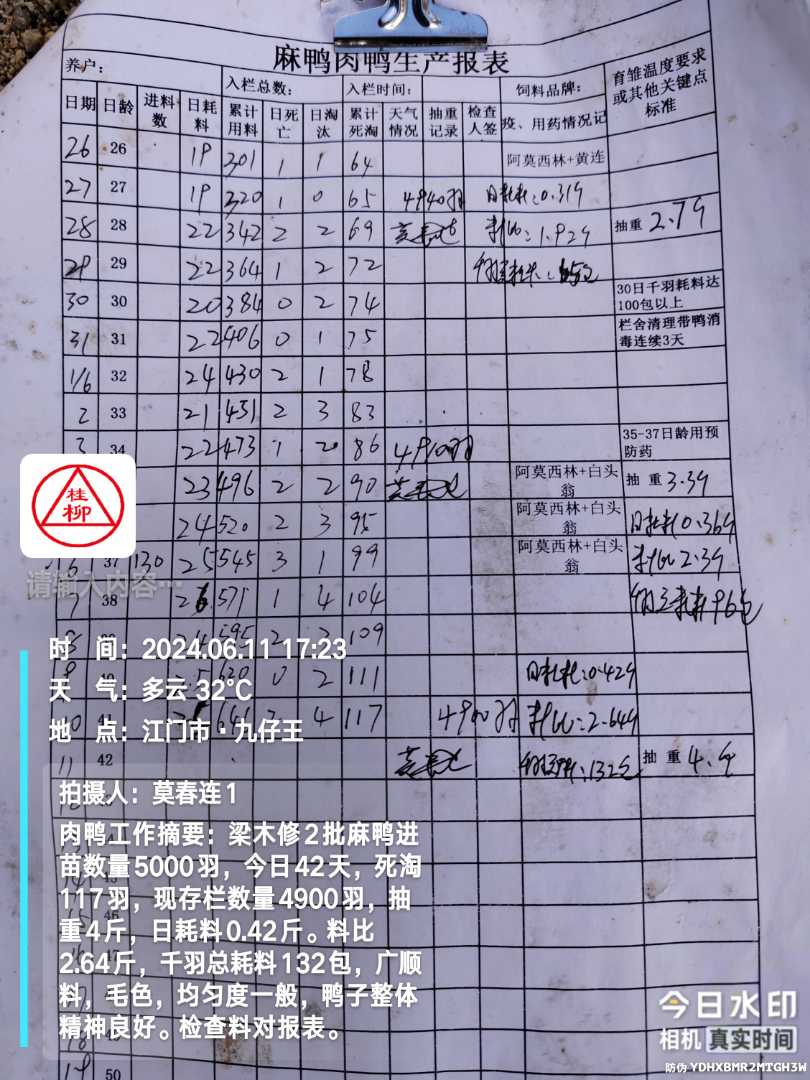 麻鸭肉鸭生产报表
养户:
入栏总数: 入栏时间: 饲料品牌: 育雏温度要求或其他关键点标准
日期 日龄 进料数 日耗料 累计用料 日死亡 日淘汰 累计死淘 天气情况 抽重记录 检查人签 疫、用药情况记
26 26 19 301 1 1 64 阿莫西林+黄连
27 27 19 320 1 0 65 4940羽 日耗料:0.31斤
28 28 22 342 2 2 69 料比:1.92斤 抽重 2.7斤
29 29 22 364 1 2 72
30 30 20 384 0 2 74 30日千羽耗料达100包以上
31 31 22 406 0 1 75 栏舍清理带鸭消毒连续3天
1/6 32 24 430 2 1 78
2 33 21 451 2 3 83
3 34 22 473 1 2 86 4910羽 35-37日龄用预防药
23 496 2 2 90 阿莫西林+白头翁 抽重 3.3斤
24 520 2 3 95 阿莫西林+白头翁 日耗料0.36斤
6 37 130 25 545 3 1 99 阿莫西林+白头翁 料比2.3斤
7 38 26 571 1 4 104
8 109
0 2 111 日耗料:0.42斤
4 117 4900羽 料比:2.64斤
11 42 132包 抽重
50
桂柳
请输入内容…
时 间:2024.06.11 17:23
天 气:多云 32℃
地 点:江门市·九仔王
拍摄人:莫春连1
肉鸭工作摘要:梁木修2批麻鸭进
苗数量5000羽,今日42天,死淘
117羽,现存栏数量4900羽,抽
重4斤,日耗料0.42斤。料比
2.64斤,千羽总耗料132包,广顺
料,毛色,均匀度一般,鸭子整体
精神良好。检查料对报表。
今日水印
相机 真实时间
防伪 YDHXBMR2MTGH3W